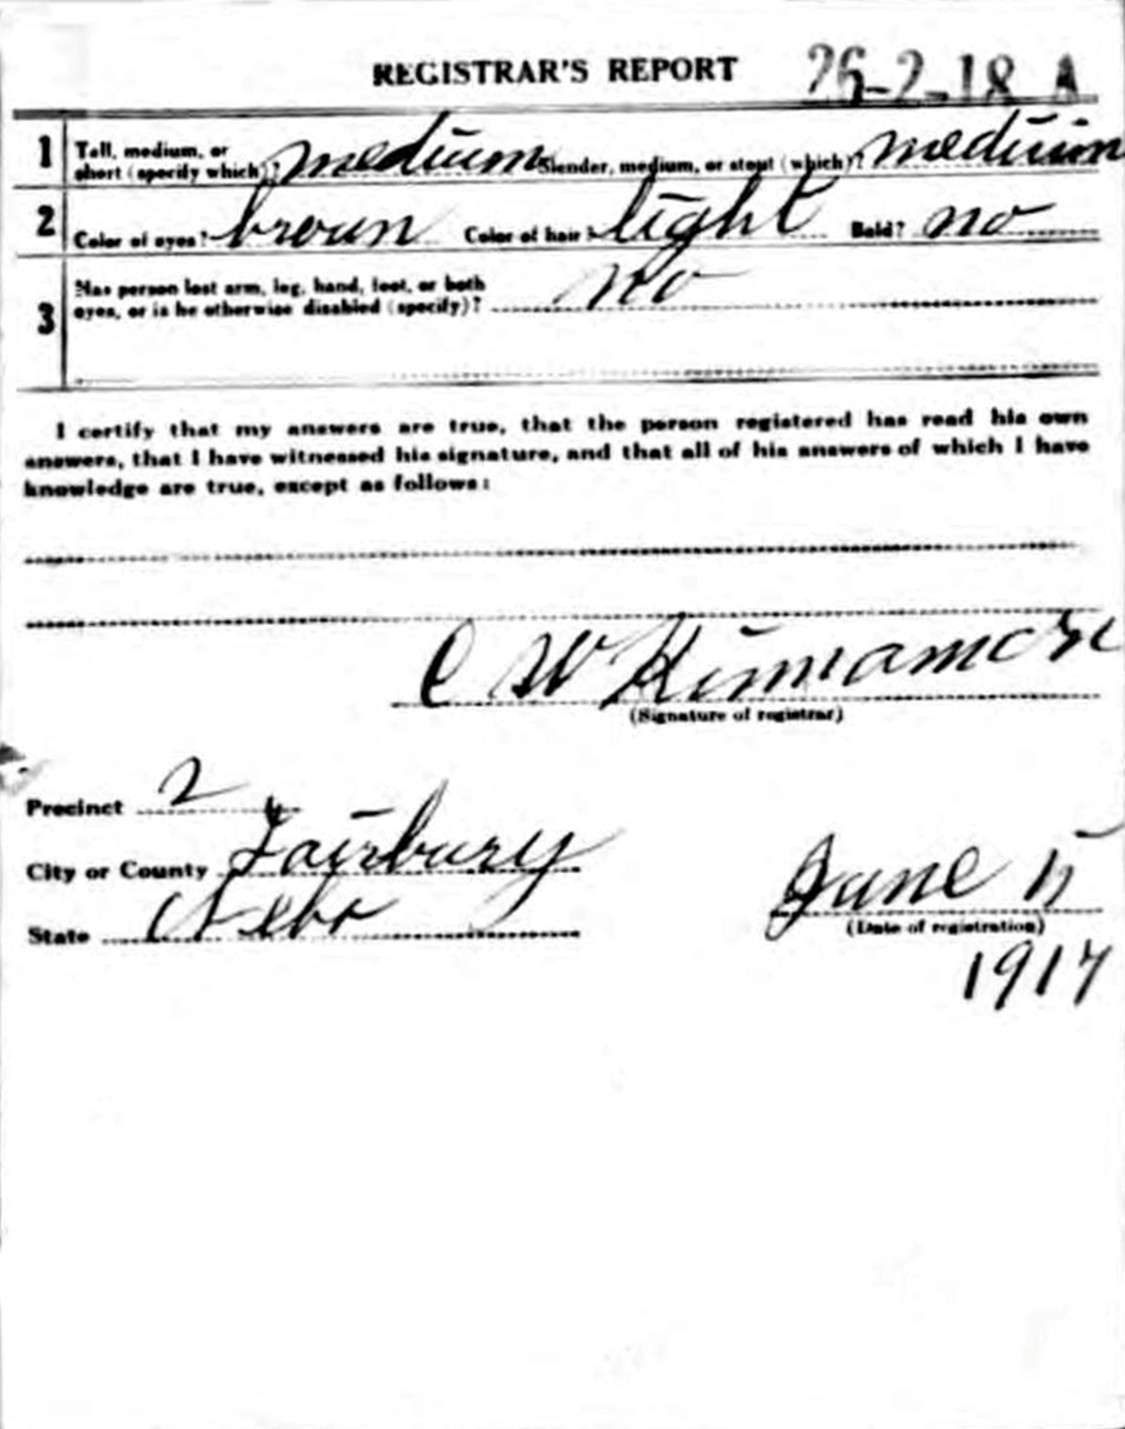 REGISTRAR'S REPORT 26-2-18 A
1 Tall, medium, or short (specify which)? medium Slender, medium, or stout (which)? medium
2 Color of eyes? brown Color of hair? light Bald? no
3 Has person lost arm, leg, hand, foot, or both
eyes, or is he otherwise disabled (specify)? no
I certify that my answers are true, that the person registered has read his own
answers, that I have witnessed his signature, and that all of his answers of which I have
knowledge are true, except as follows:
C W
(Signature of registrar)
Precinct 2
City or County Fairbury
State Nebr
June 5
(Date of registration)
1917